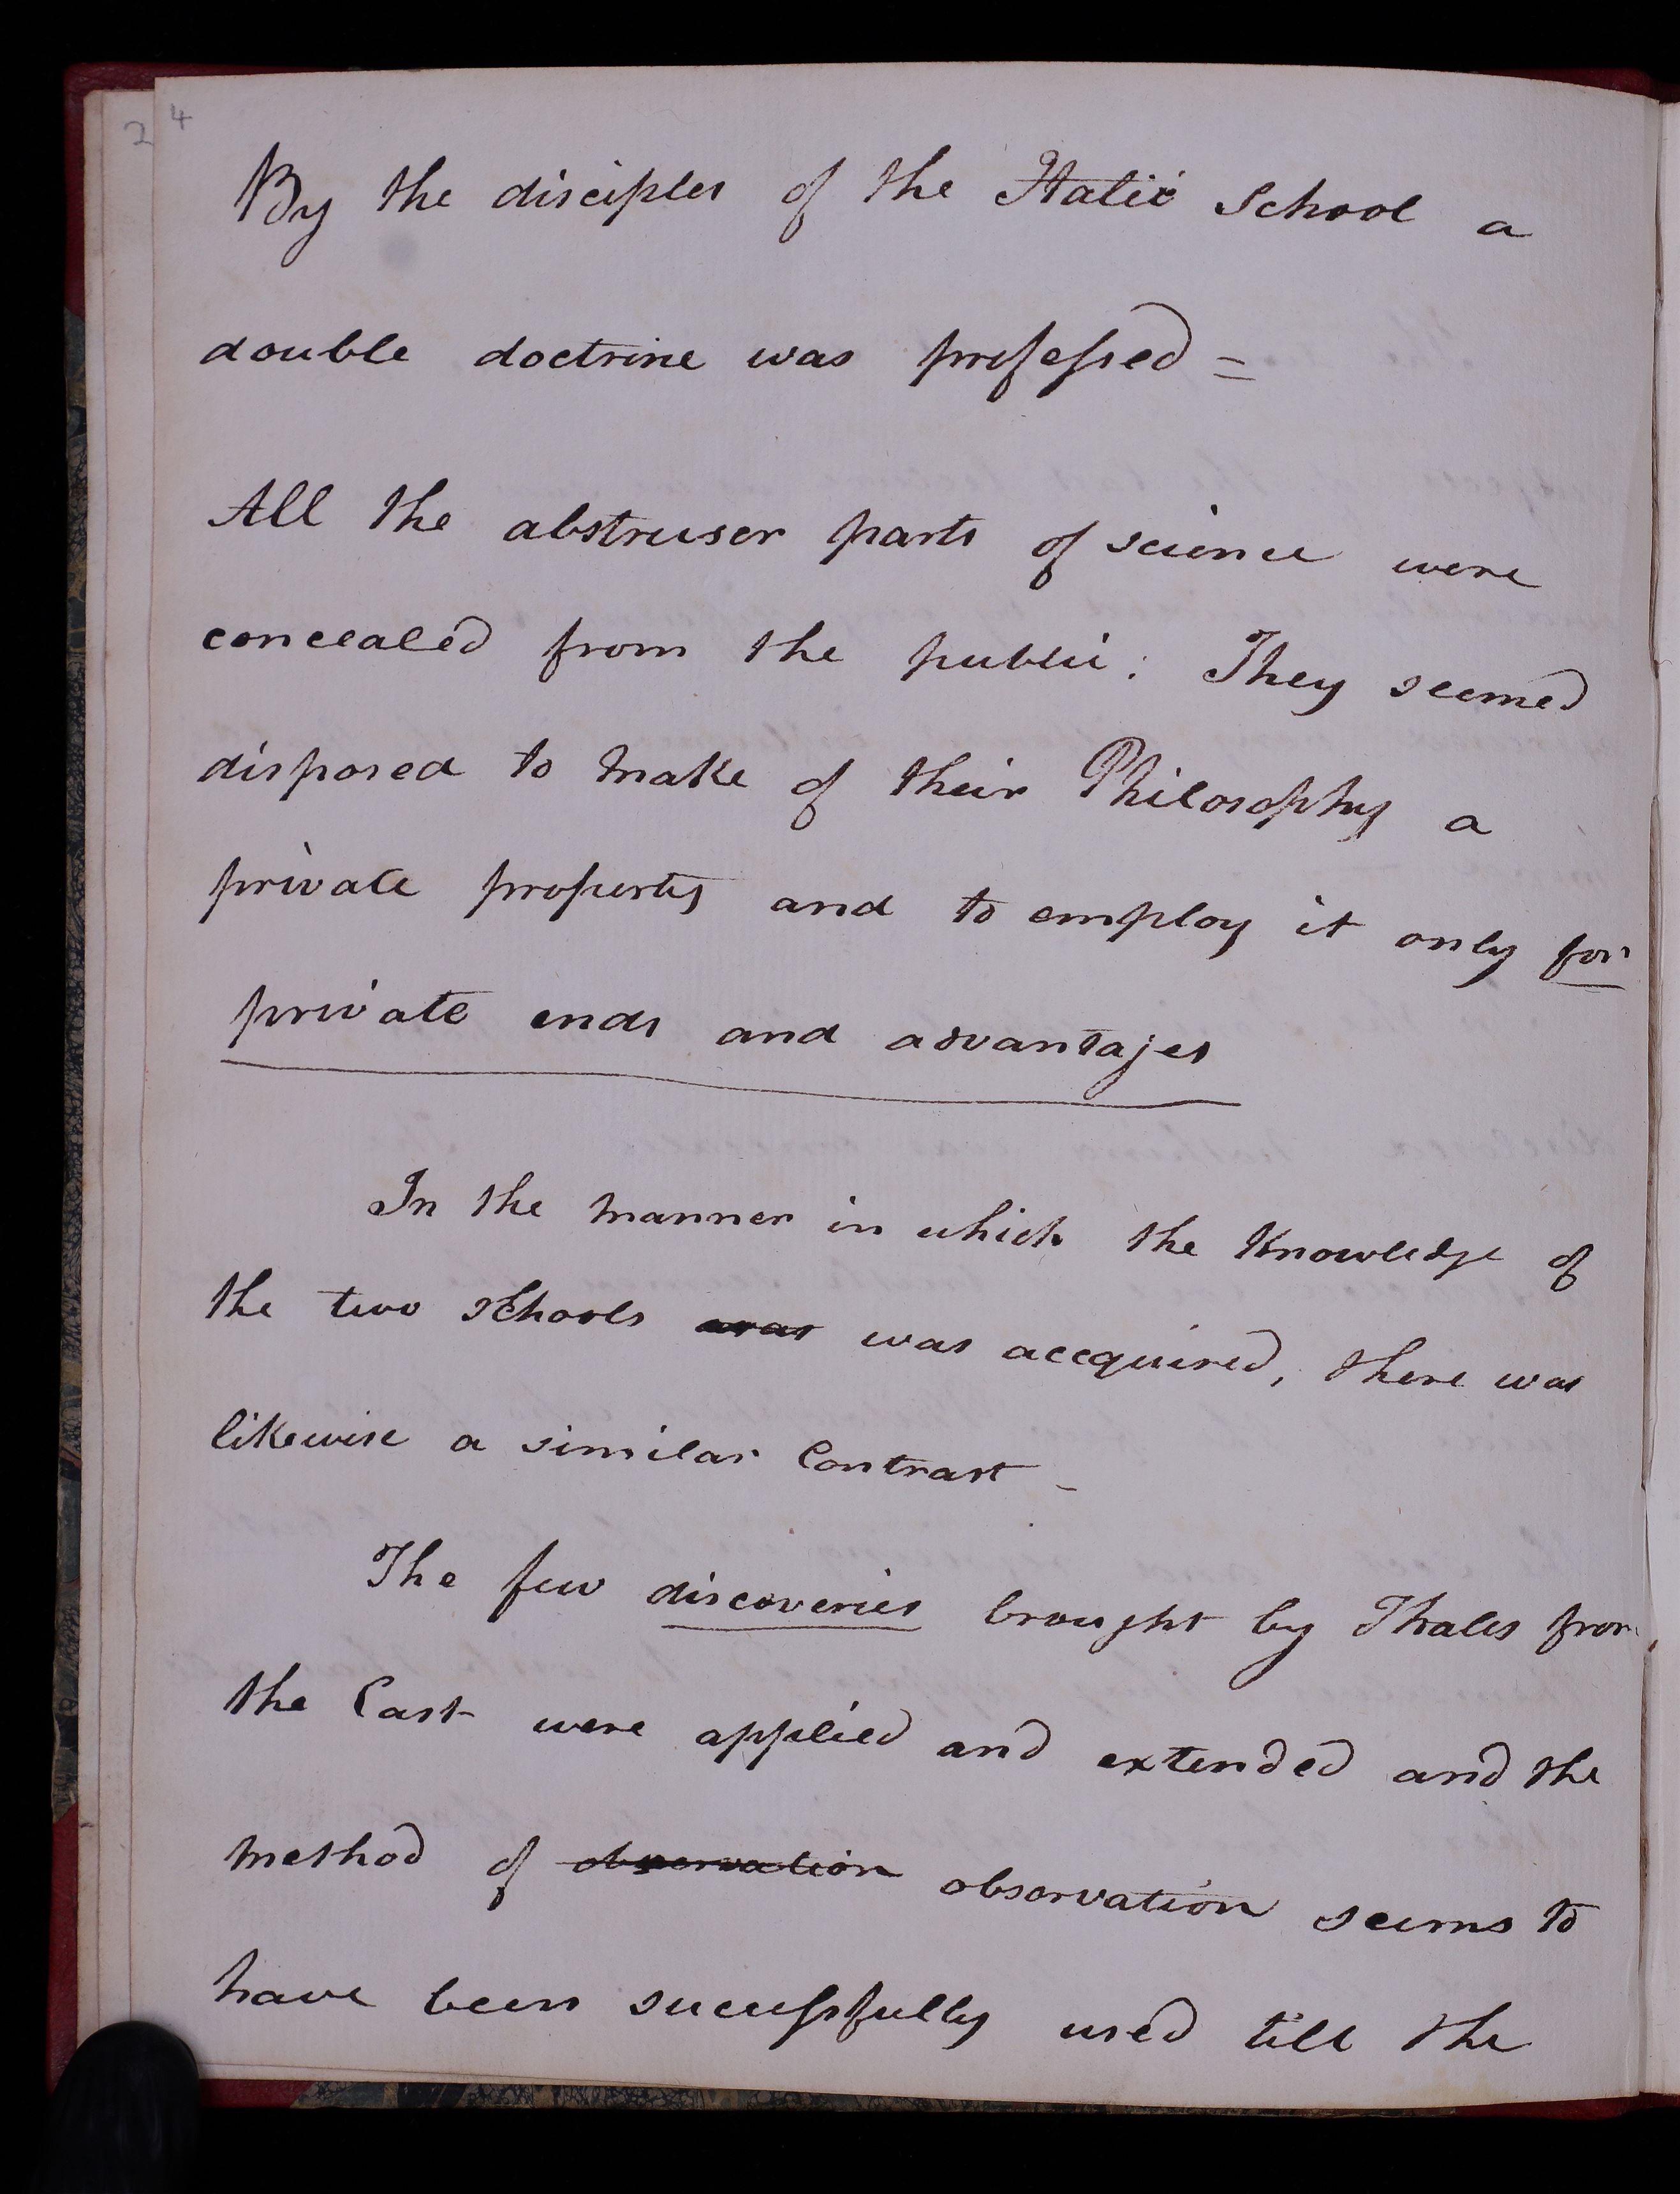 2 4
By the disciples of the Italic School a
double doctrine was professed =
All the abstruser parts of science were
concealed from the public: They seemed
disposed to make of their Philosophy a
private property and to employ it only for
private ends and advantages
In the manner in which the Knowledge of
the two schools was was accquired, there was
likewise a similar Contrast _
The few discoveries brought by Thales from
the East were applied and extended and the
method of observation observation seems to
have been sucessfully used till the